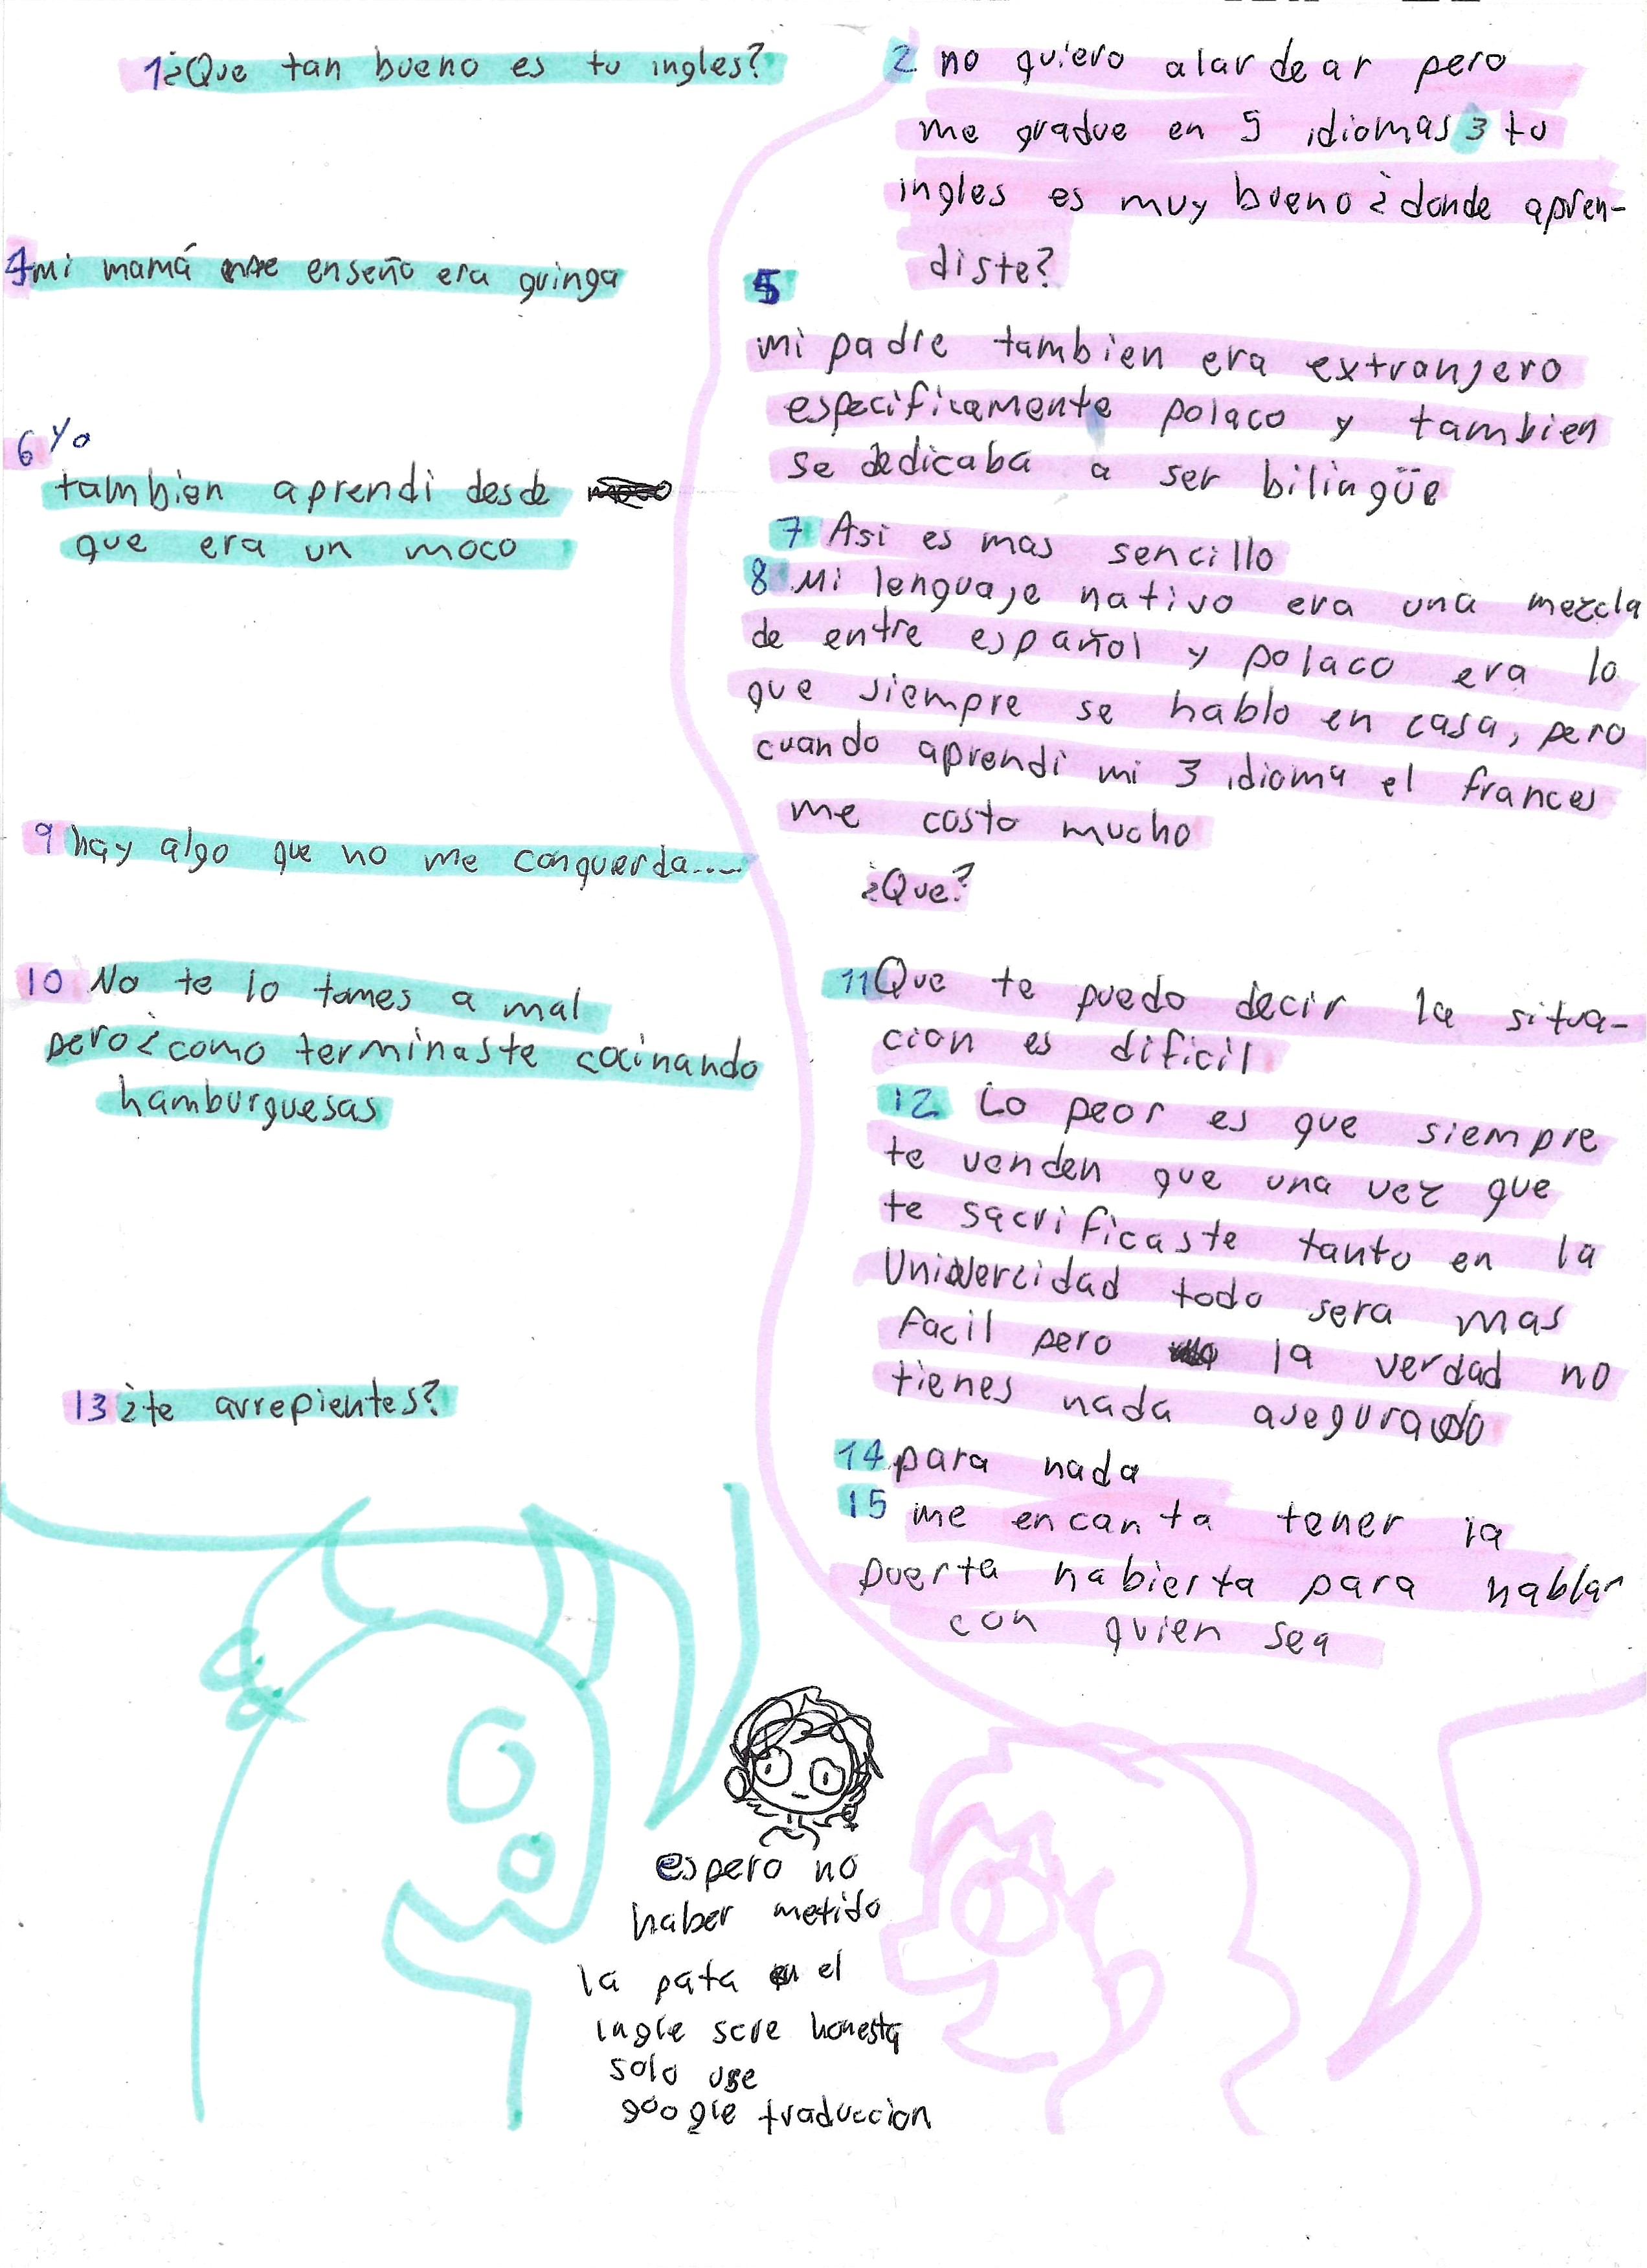 1¿Que tan bueno es tu ingles?
2 no quiero alardear pero
me gradue en 5 idiomas 3 tu
ingles es muy bueno ¿donde apren-
diste?
4 mi mamá me enseño era guinga
5
mi padre tambien era extranjero
especificamente polaco y tambien
se dedicaba a ser bilingüe
6 Yo
tambien aprendi desde
que era un moco
7 Asi es mas sencillo
8 Mi lenguaje nativo era una mezcla
de entre español y polaco era lo
que siempre se hablo en casa, pero
cuando aprendi mi 3 idioma el frances
me costo mucho
9 hay algo que no me conquerda....
¿Que?
10 No te lo tomes a mal
pero ¿como terminaste cocinando
hamburguesas
11 Que te puedo decir la situa-
cion es dificil
12 Lo peor es que siempre
te venden que una vez que
te sacrificaste tanto en la
Univercidad todo sera mas
facil pero la verdad no
tienes nada asegurado
13 ¿te arrepientes?
14 para nada
15 me encanta tener la
puerta habierta para hablar
con quien sea
espero no
haber metido
la pata en el
ingle sere honesta
solo use
google traduccion